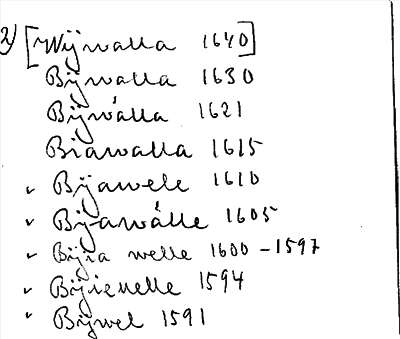 2) [Wijwalla 1640]
Bÿwalla 1630
Bÿwálla 1621
Biawalla 1615
Bÿawele 1610
Bÿawálle 1605
Bÿia welle 1600 - 1597
Bÿievelle 1594
Bÿwel 1591